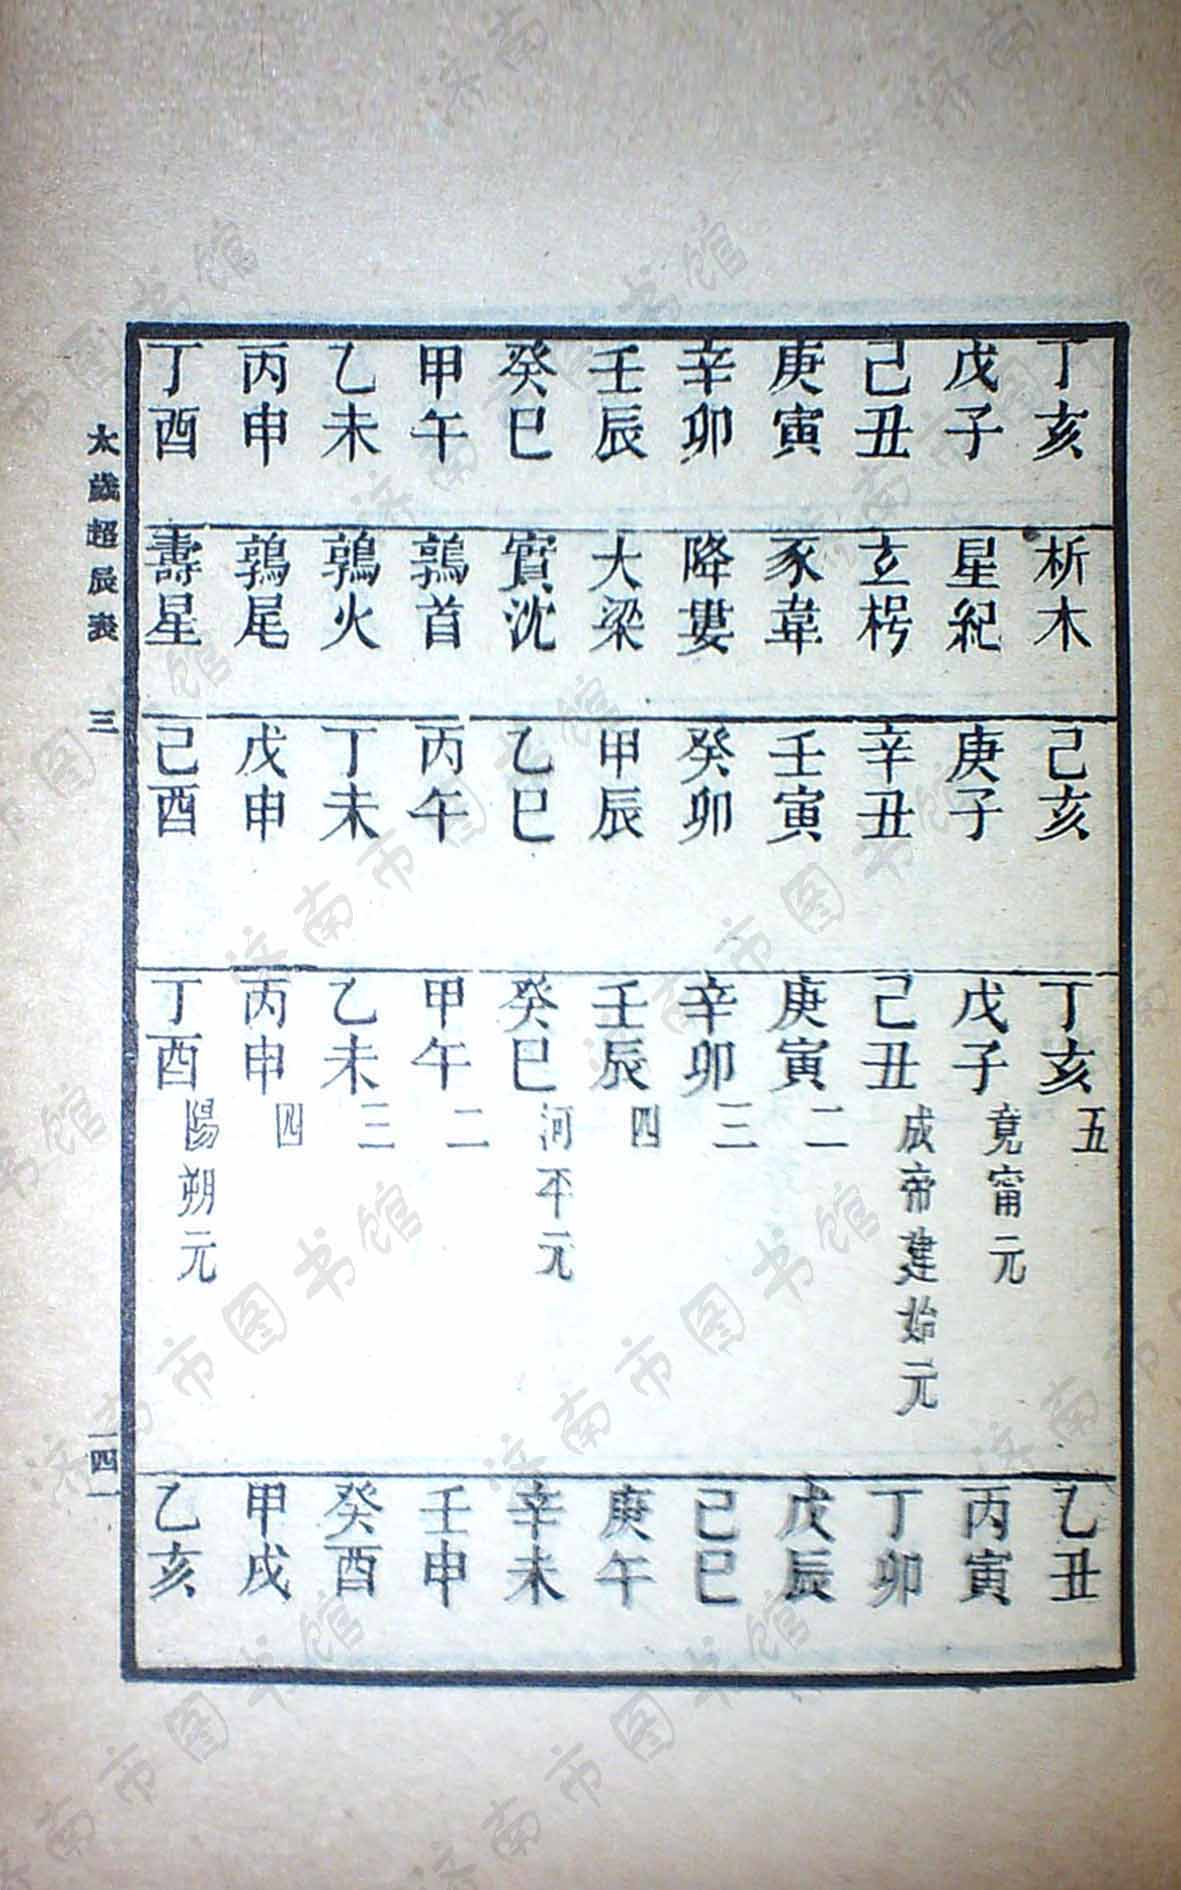 丁亥 析木 己亥 丁亥 五 乙丑
戊子 星紀 庚子 戊子 竟甯元 丙寅
己丑 玄枵 辛丑 己丑 成帝建始元 丁卯
庚寅 豕韋 壬寅 庚寅 二 戊辰
辛卯 降婁 癸卯 辛卯 三 己巳
壬辰 大梁 甲辰 壬辰 四 庚午
癸巳 實沈 乙巳 癸巳 河平元 辛未
甲午 鶉首 丙午 甲午 二 壬申
乙未 鶉火 丁未 乙未 三 癸酉
丙申 鶉尾 戊申 丙申 四 甲戌
丁酉 壽星 己酉 丁酉 陽朔元 乙亥
太歲超辰表 三 一四一
济南市图书馆